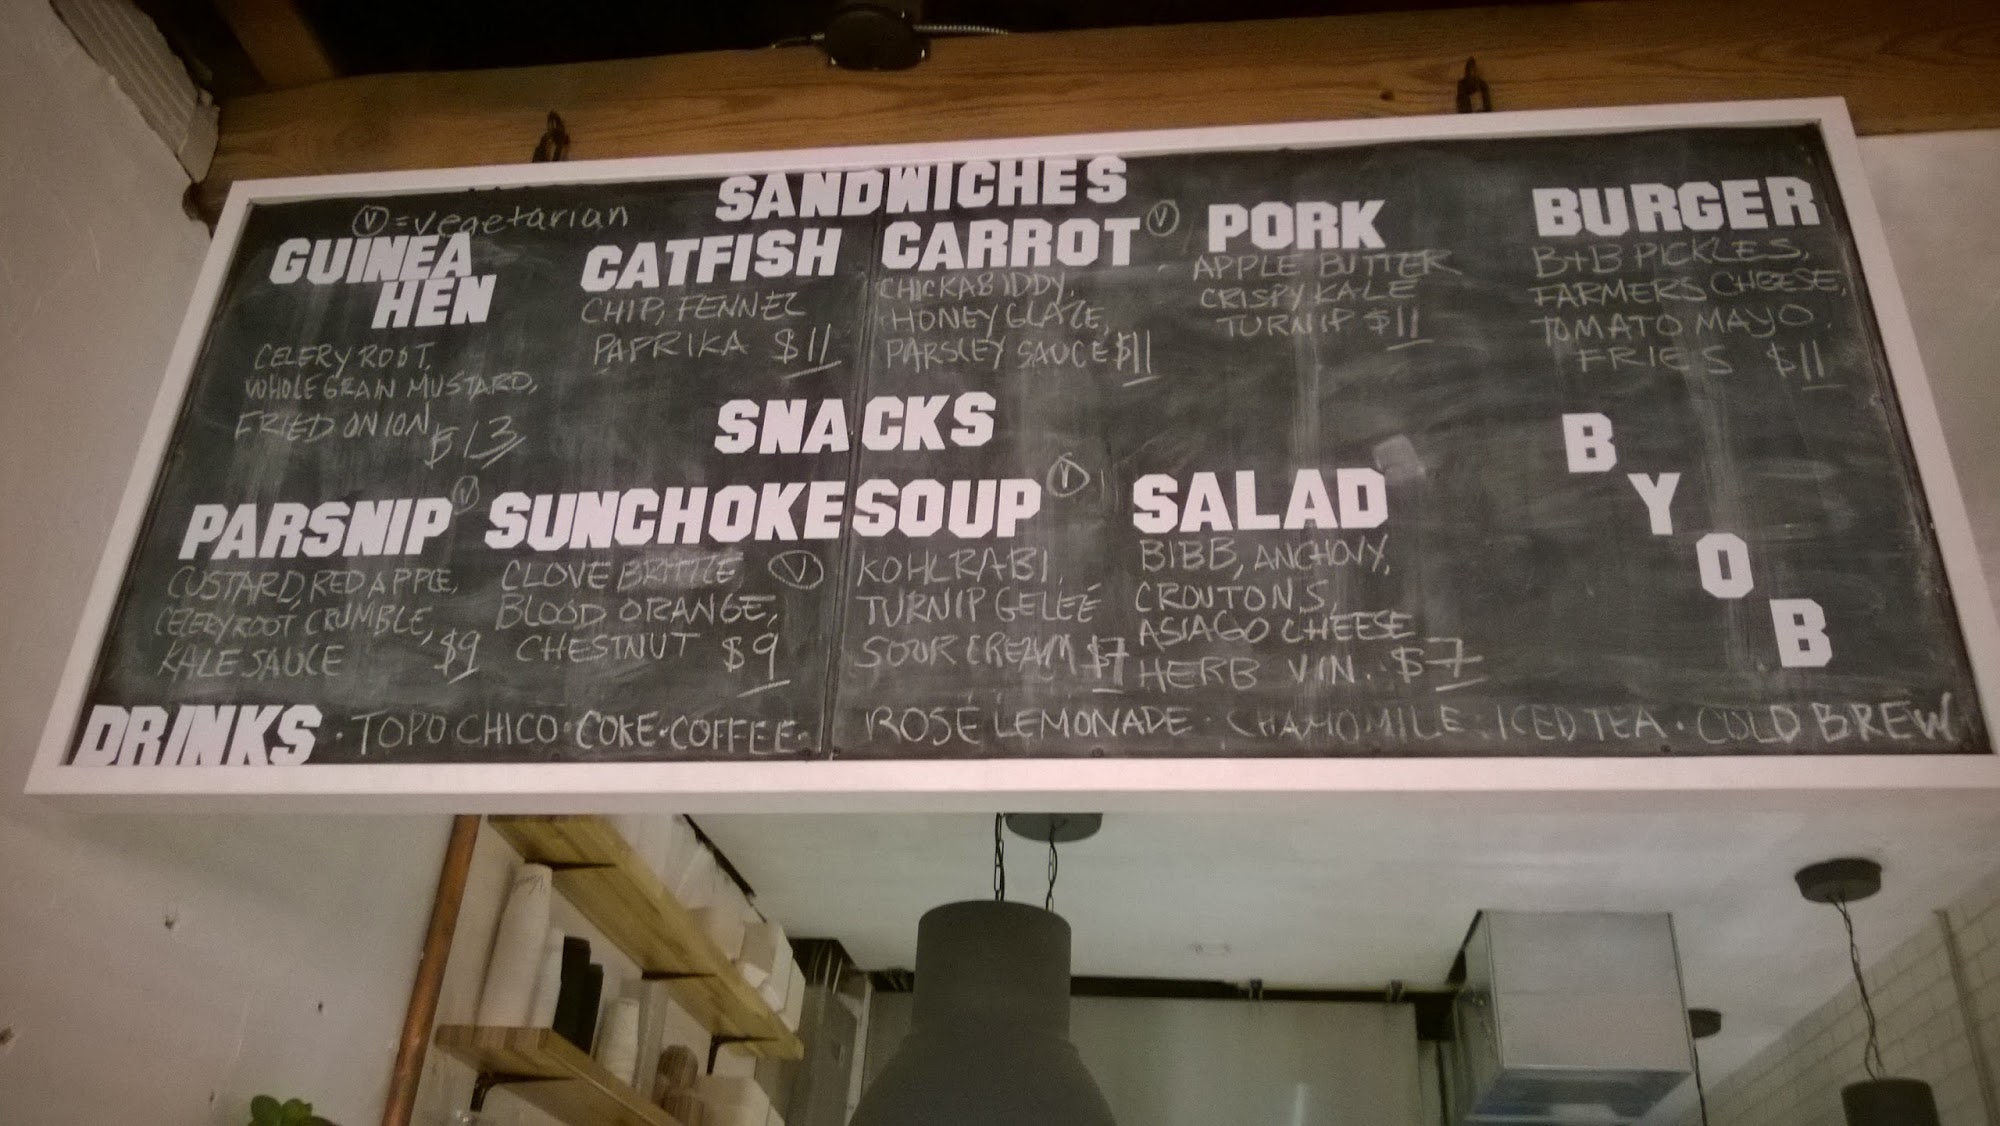 Ⓥ = vegetarian
SANDWICHES
GUINEA
HEN
CELERY ROOT,
WHOLE GRAIN MUSTARD,
FRIED ONION
$13
CATFISH
CHIP, FENNEL
PAPRIKA $11
CARROT Ⓥ
CHICKABIDDY,
HONEY GLAZE,
PARSLEY SAUCE $11
PORK
APPLE BUTTER
CRISPY KALE
TURNIP $11
BURGER
B+B PICKLES,
FARMERS CHEESE,
TOMATO MAYO
FRIES $11
SNACKS
PARSNIP Ⓥ
CUSTARD, RED APPLE,
CELERY ROOT CRUMBLE,
KALE SAUCE $9
SUNCHOKE
CLOVE BRITTLE Ⓥ
BLOOD ORANGE,
CHESTNUT $9
SOUP Ⓥ
KOHLRABI,
TURNIP GELEÉ
SOUR CREAM $7
SALAD
BIBB, ANCHOVY,
CROUTONS,
ASIAGO CHEESE
HERB VIN. $7
B
Y
O
B
DRINKS · TOPO CHICO · COKE · COFFEE · ROSÉ LEMONADE · CHAMOMILE · ICED TEA · COLD BREW